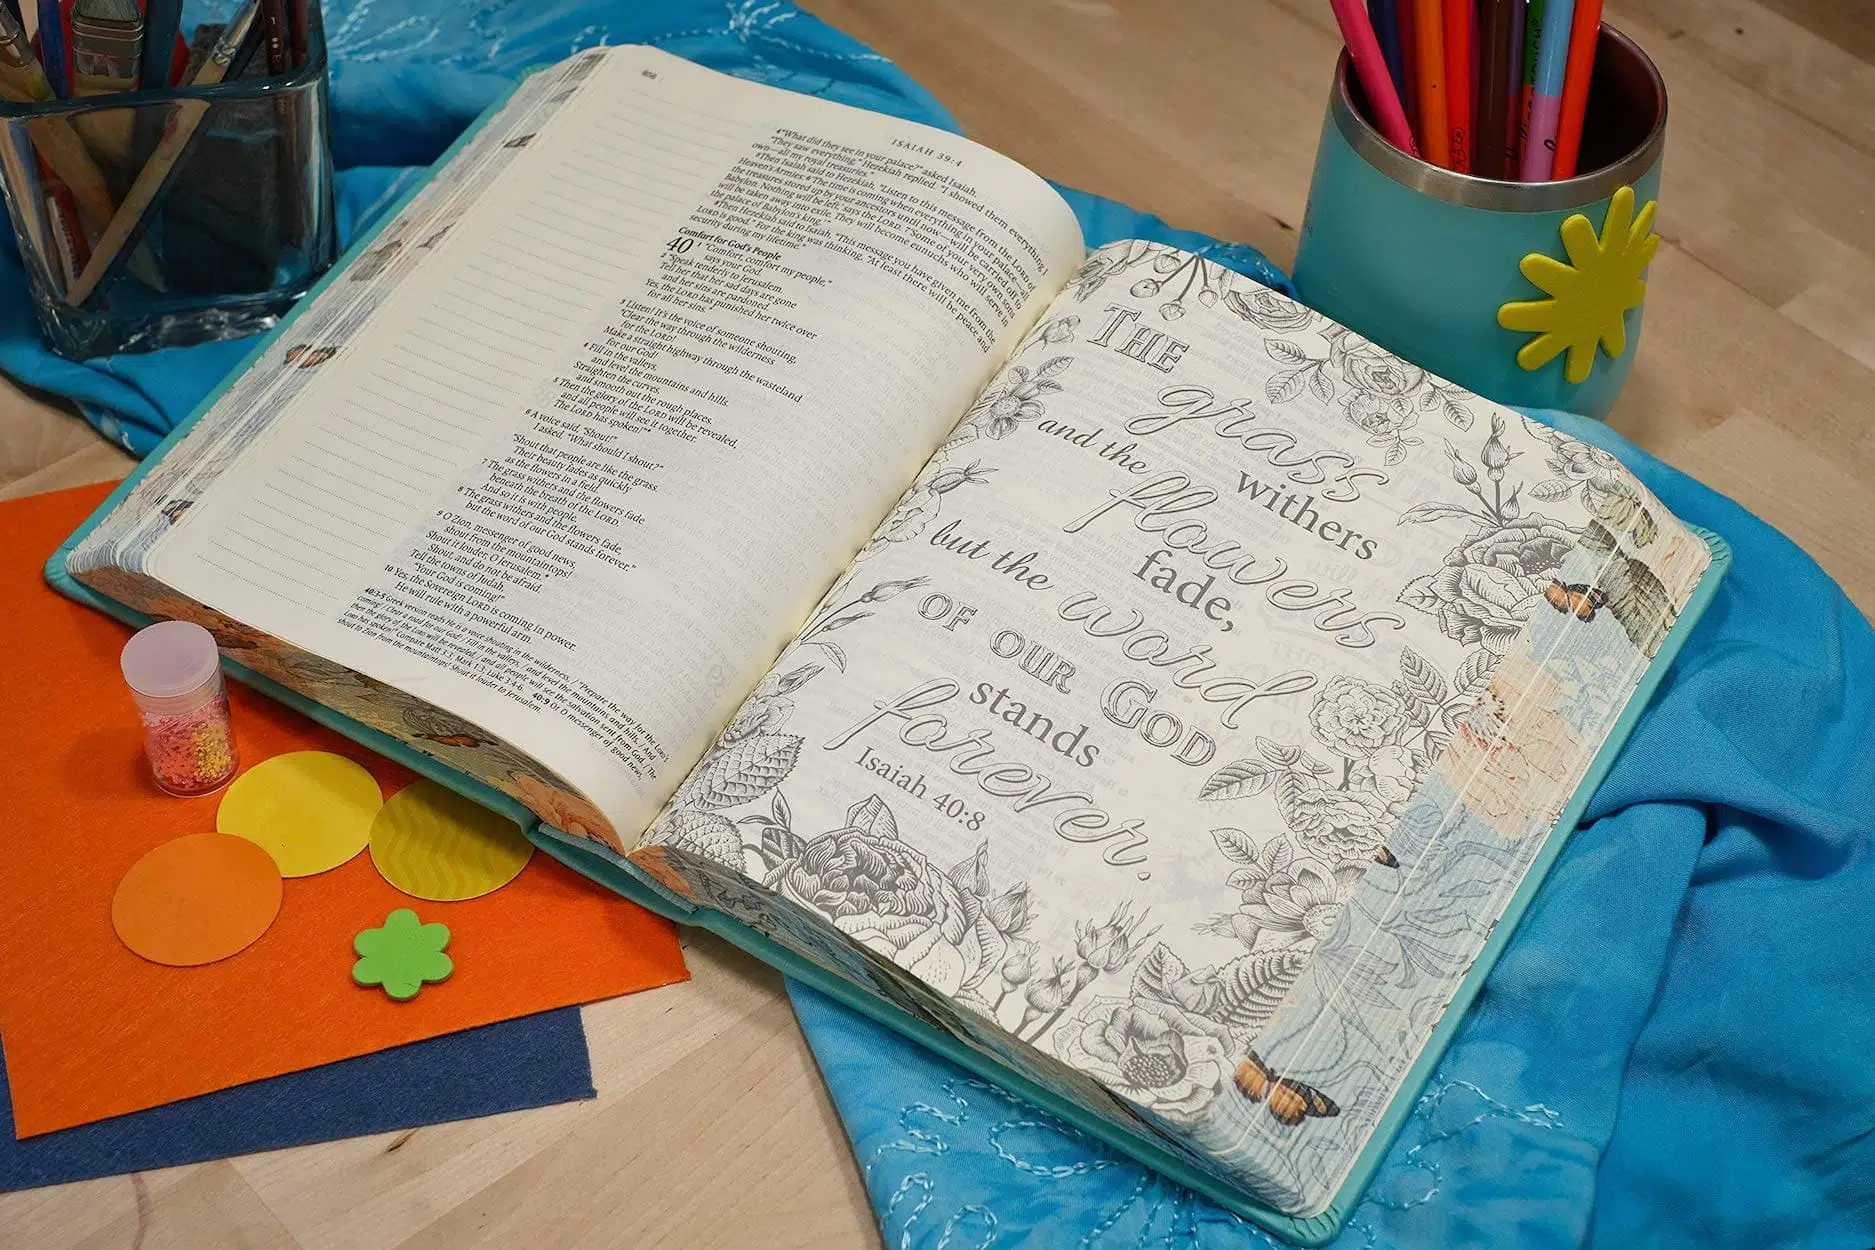 ISAIAH 39:4
4 "What did they see in your palace?" asked Isaiah.
"They saw everything," Hezekiah replied. "I showed them everything I
own—all my royal treasuries."
5 Then Isaiah said to Hezekiah, "Listen to this message from the LORD of
Heaven's Armies: 6 'The time is coming when everything in your palace—all
the treasures stored up by your ancestors until now—will be carried off to
Babylon. Nothing will be left,' says the LORD. 7 'Some of your very own sons
will be taken away into exile. They will become eunuchs who will serve in
the palace of Babylon's king.'"
8 Then Hezekiah said to Isaiah, "This message you have given me from the
LORD is good." For the king was thinking, "At least there will be peace and
security during my lifetime."
Comfort for God's People
40 1 "Comfort, comfort my people,"
says your God.
2 "Speak tenderly to Jerusalem.
Tell her that her sad days are gone
and her sins are pardoned.
Yes, the LORD has punished her twice over
for all her sins."
3 Listen! It's the voice of someone shouting,
"Clear the way through the wilderness
for the LORD!
Make a straight highway through the wasteland
for our God!
4 Fill in the valleys,
and level the mountains and hills.
Straighten the curves,
and smooth out the rough places.
5 Then the glory of the LORD will be revealed,
and all people will see it together.
The LORD has spoken!"*
6 A voice said, "Shout!"
I asked, "What should I shout?"
"Shout that people are like the grass.
Their beauty fades as quickly
as the flowers in a field.
7 The grass withers and the flowers fade
beneath the breath of the LORD.
And so it is with people.
8 The grass withers and the flowers fade,
but the word of our God stands forever."
9 O Zion, messenger of good news,
shout from the mountaintops!
Shout it louder, O Jerusalem.*
Shout, and do not be afraid.
Tell the towns of Judah,
"Your God is coming!"
10 Yes, the Sovereign LORD is coming in power.
He will rule with a powerful arm.
40:3-5 Greek version reads He is a voice shouting in the wilderness, / "Prepare the way for the LORD's
coming! / Clear a road for our God! / Fill in the valleys, / and level the mountains and hills. / And
then the glory of the LORD will be revealed, / and all people will see the salvation sent from God. / The
LORD has spoken!" Compare Matt 3:3; Mark 1:3; Luke 3:4-6. 40:9 Or O messenger of good news,
shout to Zion from the mountaintops! Shout it louder to Jerusalem.
THE
grass
withers
and the flowers
fade,
but the word
OF OUR GOD
stands
forever.
Isaiah 40:8